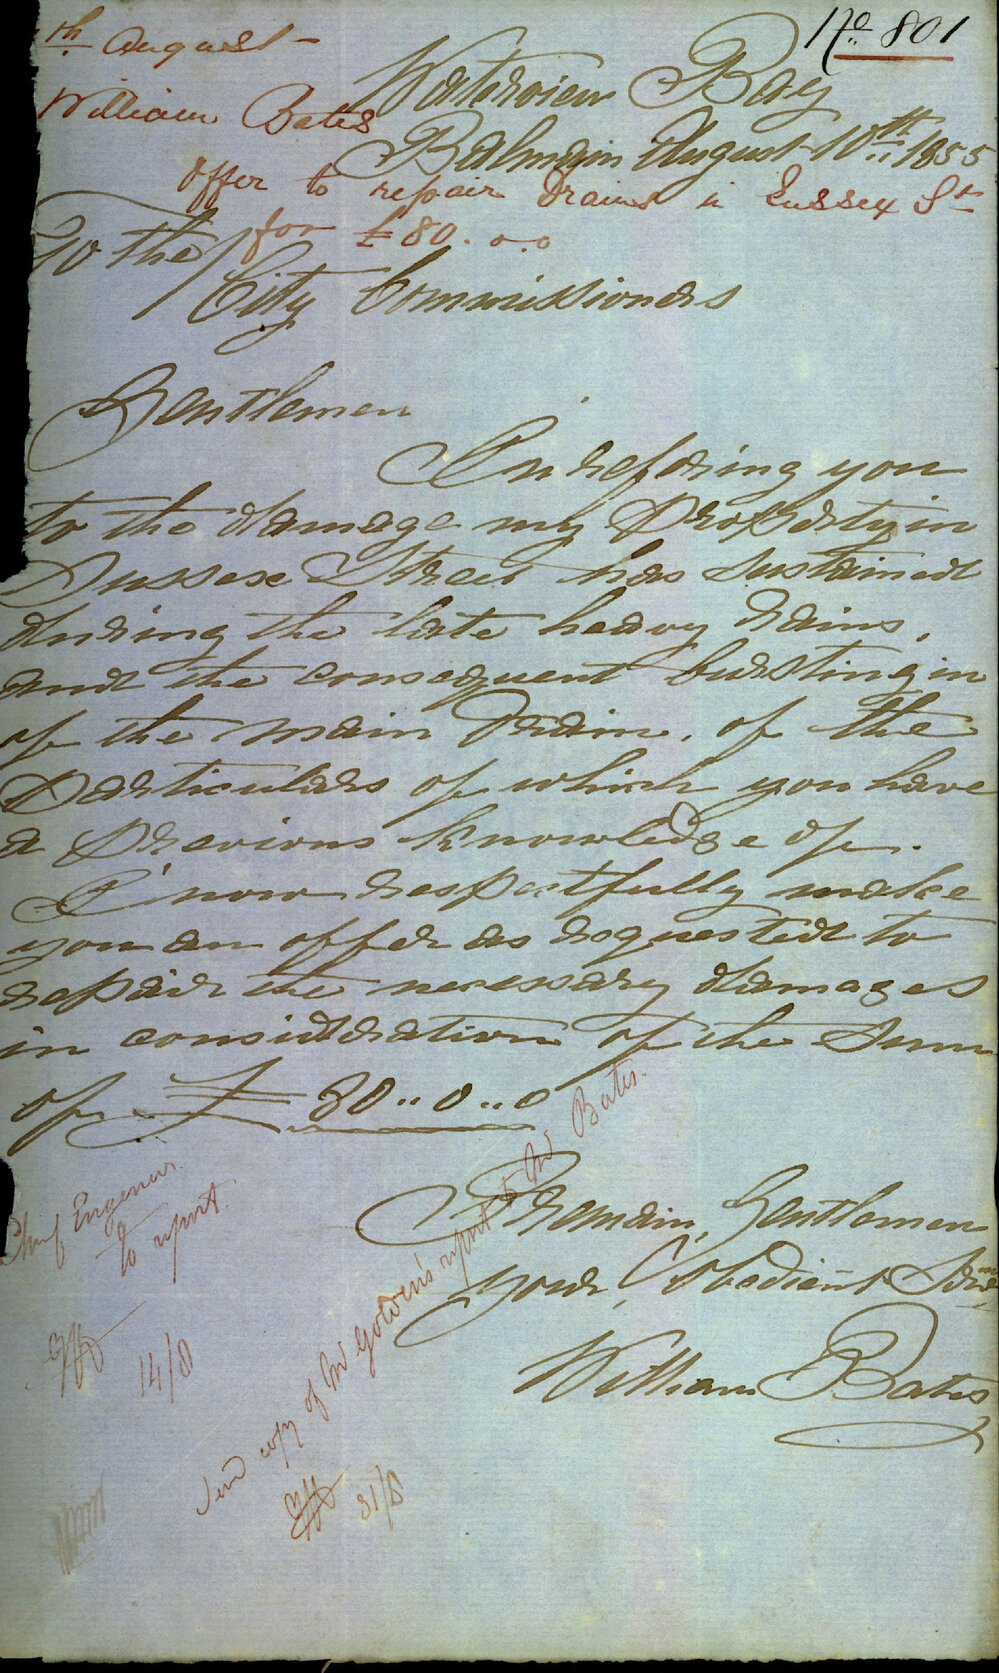 No 801
th August -
William Bates
Offer to repair Drains in Sussex St
for £80.0.0
Waterview Bay
Balmain August 10th 1855
To the
City Commissioners
Gentlemen
In refering you
to the damage my Property in
Sussex Street has sustained
during the late heavy rains,
and the consequent bursting in
of the main Drain. of the
Particulars of which you have
a Previous knowledge of.
I now respectfully make
you an offer as requested to
repair the necessary damages
in consideration of the Sum
of £80..0..0
I remain, Gentlemen
your Obedient Servt
William Bates
Chief Engeneer
to report.
14/8
Send copy of Mr Golden's report to Mr Bates.
31/8